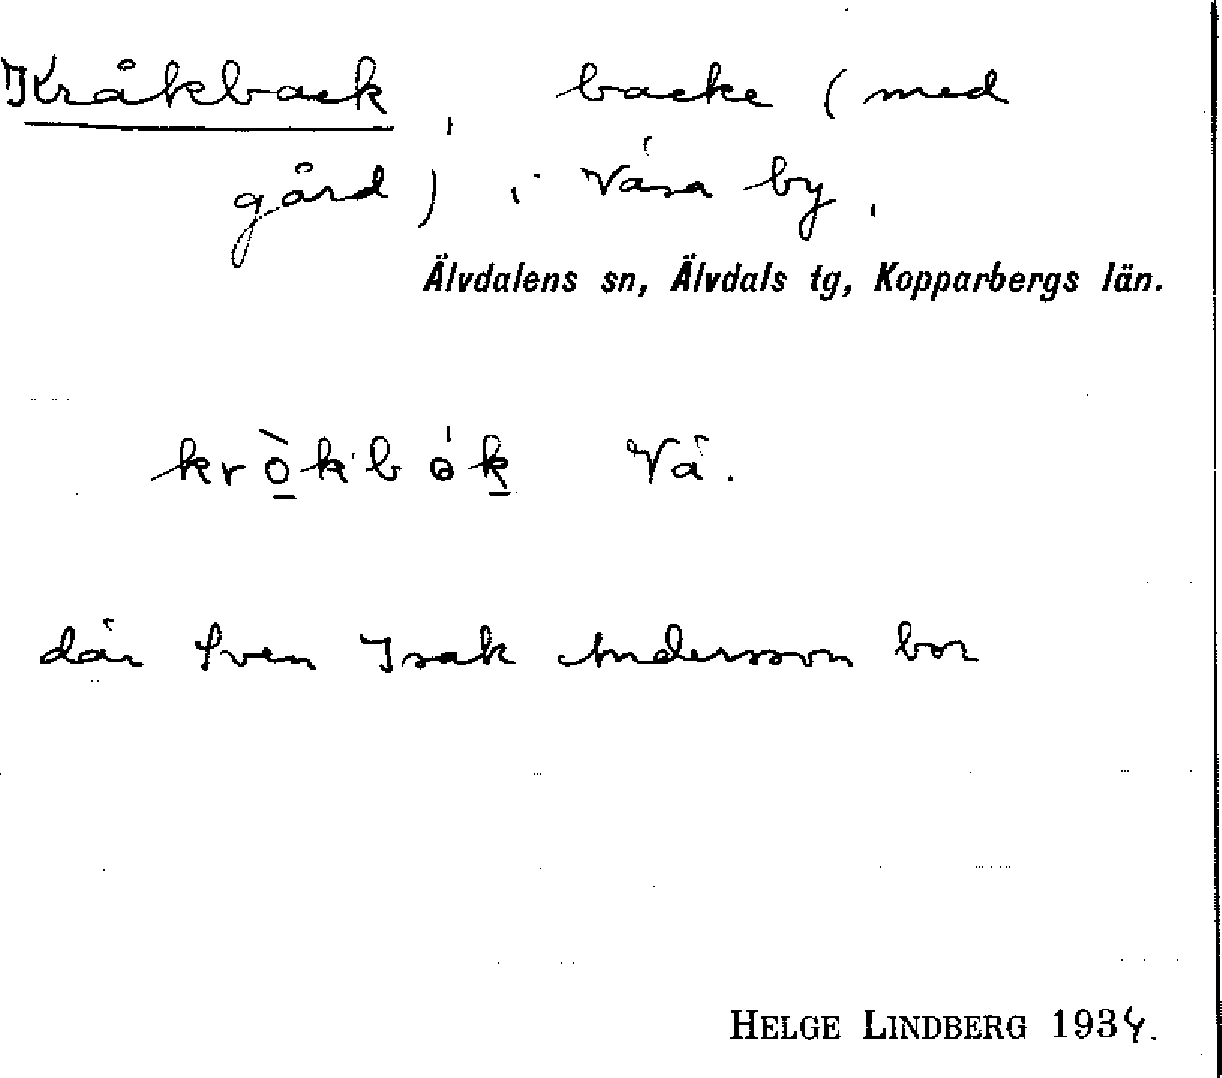 Kråkback, backe (med
gård) i Våsa by,
Älvdalens sn, Älvdals tg, Kopparbergs län.
krò̠kbók̠ Vå.
där Sven Isak Andersson bor
HELGE LINDBERG 1934.